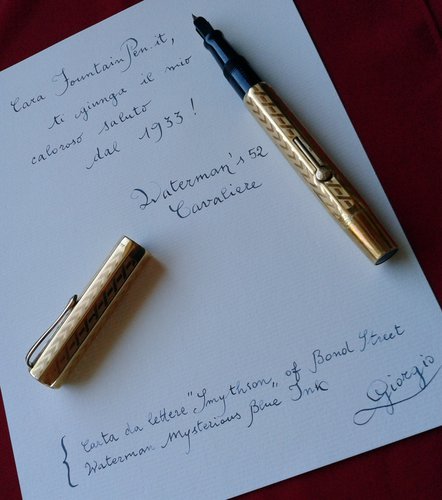 Cara FountainPen.it,
ti giunga il mio
caloroso saluto
dal 1933!
Waterman's 52
Cavaliere
Carta da lettere "Smythson" of Bond Street
Waterman Mysterious Blue Ink
Giorgio